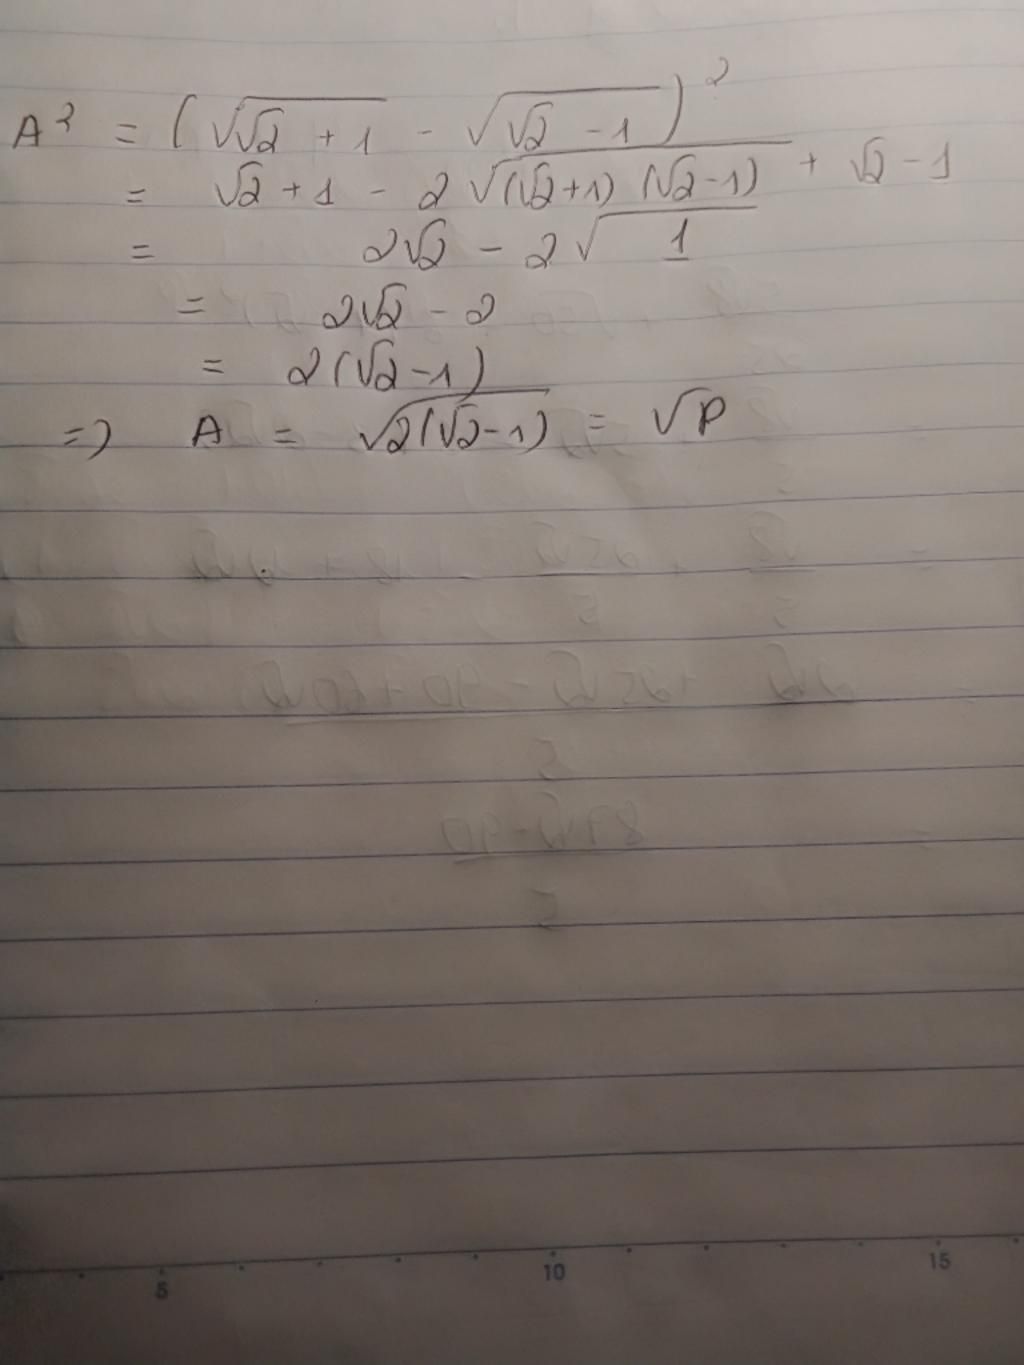 A² = (√(√2 + 1) - √(√2 - 1))²
= √2 + 1 - 2√((√2+1)(√2-1)) + √2 - 1
= 2√2 - 2√1
= 2√2 - 2
= 2(√2-1)
=> A = √(2(√2-1)) = √P
5 10 15